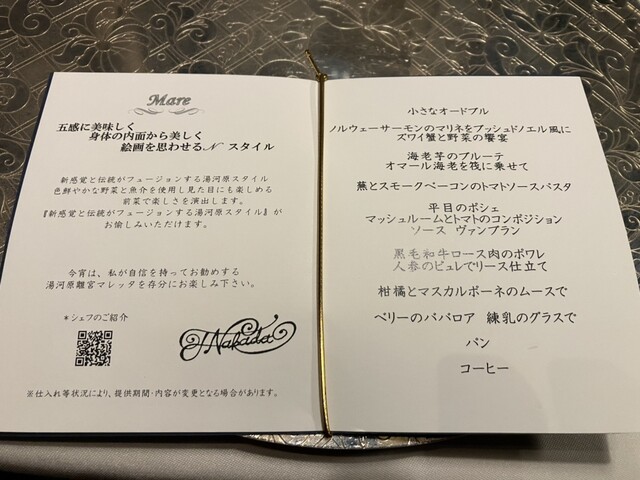 Mare
五感に美味しく
身体の内面から美しく
絵画を思わせるN スタイル
新感覚と伝統がフュージョンする湯河原スタイル
色鮮やかな野菜と魚介を使用し見た目にも楽しめる
前菜で楽しさを演出します。
『新感覚と伝統がフュージョンする湯河原スタイル』が
お愉しみいただけます。
今宵は、私が自信を持ってお勧めする
湯河原離宮マレッタを存分にお楽しみ下さい。
*シェフのご紹介
T Nakada
※仕入れ等状況により、提供期間・内容が変更となる場合があります。
小さなオードブル
ノルウェーサーモンのマリネをブッシュドノエル風に
ズワイ蟹と野菜の饗宴
海老芋のブルーテ
オマール海老を筏に乗せて
蕪とスモークベーコンのトマトソースパスタ
平目のポシェ
マッシュルームとトマトのコンポジション
ソース ヴァンブラン
黒毛和牛ロース肉のポワレ
人参のピュレでリース仕立て
柑橘とマスカルポーネのムースで
ベリーのババロア 練乳のグラスで
パン
コーヒー